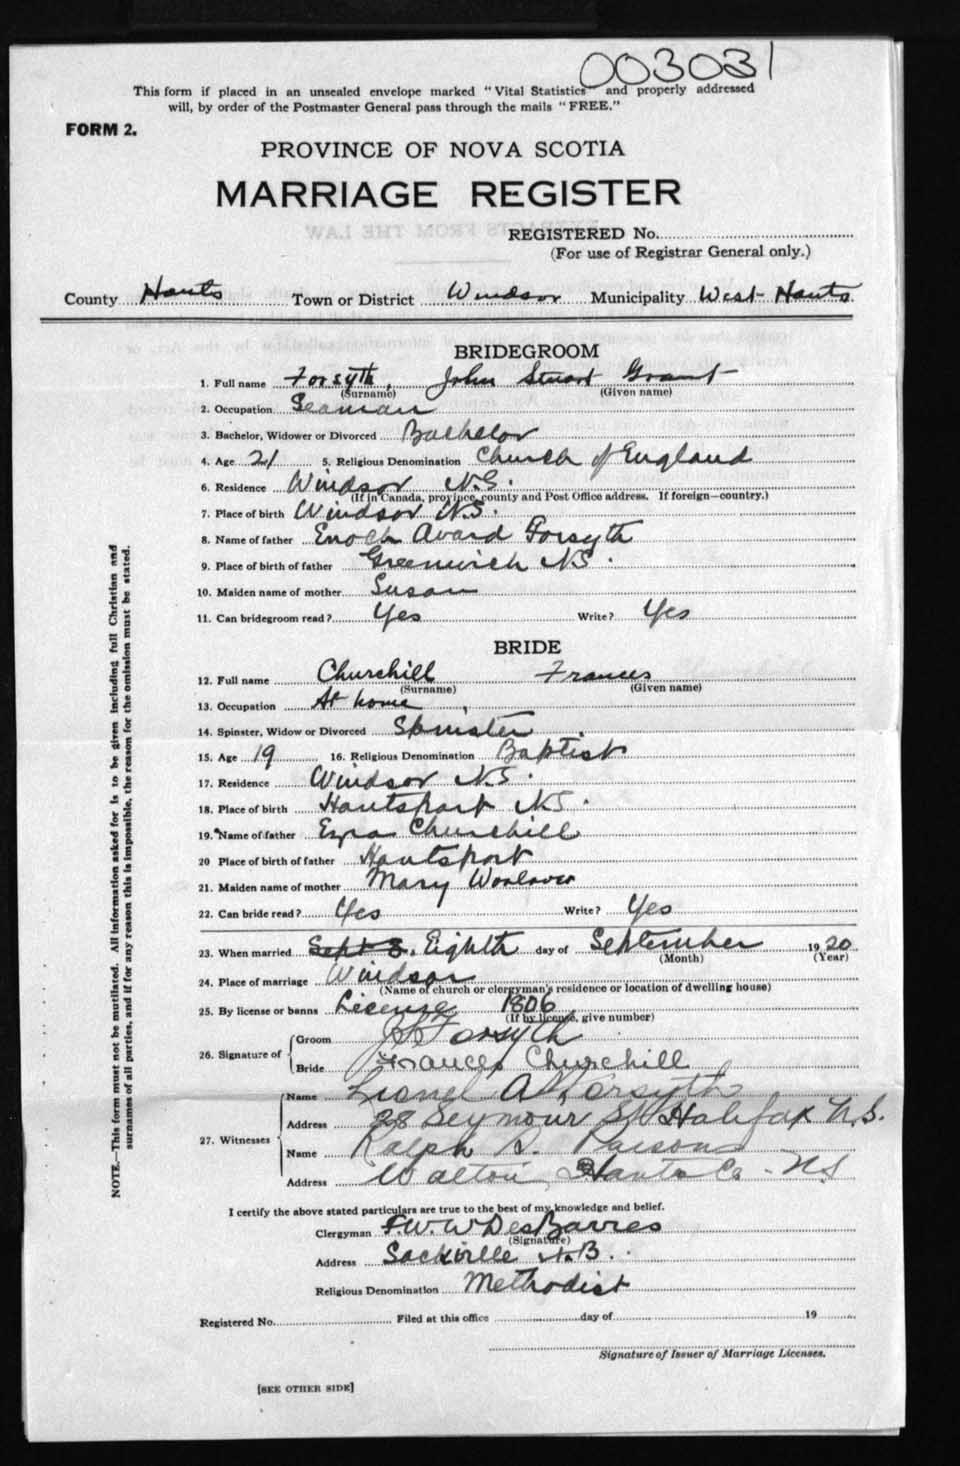 003031
This form if placed in an unsealed envelope marked "Vital Statistics" and properly addressed
will, by order of the Postmaster General pass through the mails "FREE."
FORM 2.
PROVINCE OF NOVA SCOTIA
MARRIAGE REGISTER
EXTRACTS FROM THE LAW
REGISTERED No.
(For use of Registrar General only.)
County Hants Town or District Windsor Municipality West Hants
BRIDEGROOM
1. Full name Forsyth, John Stuart Grant
(Surname) (Given name)
2. Occupation Seaman
3. Bachelor, Widower or Divorced Bachelor
4. Age 21 5. Religious Denomination Church of England
6. Residence Windsor N.S.
(If in Canada, province, county and Post Office address. If foreign—country.)
7. Place of birth Windsor N.S.
8. Name of father Enoch Avard Forsyth
9. Place of birth of father Greenwich NS.
10. Maiden name of mother Susan
11. Can bridegroom read? Yes Write? Yes
BRIDE
12. Full name Churchill Frances
(Surname) (Given name)
13. Occupation At home
14. Spinster, Widow or Divorced Spinster
15. Age 19 16. Religious Denomination Baptist
17. Residence Windsor N.S.
18. Place of birth Hantsport N.S.
19. Name of father Ezra Churchill
20 Place of birth of father Hantsport
21. Maiden name of mother Mary Woolaver
22. Can bride read? Yes Write? Yes
23. When married Sept 8, Eighth day of September 1920
(Month) (Year)
24. Place of marriage Windsor
(Name of church or clergyman's residence or location of dwelling house)
25. By license or banns License 1806
(If by license, give number)
26. Signature of Groom Forsyth
Bride Frances Churchill
27. Witnesses Name Lionel A Forsyth
Address 28 Seymour St Halifax N.S.
Name Ralph S. Parsons
Address Walton, Hants Co. NS
I certify the above stated particulars are true to the best of my knowledge and belief.
Clergyman F.W.W DesBarres
(Signature)
Address Sackville N.B.
Religious Denomination Methodist
Registered No. Filed at this office day of 19
Signature of Issuer of Marriage Licenses.
[SEE OTHER SIDE]
NOTE.—This form must not be mutilated. All information asked for is to be given including full Christian and
surnames of all parties, and if for any reason this is impossible, the reason for the omission must be stated.